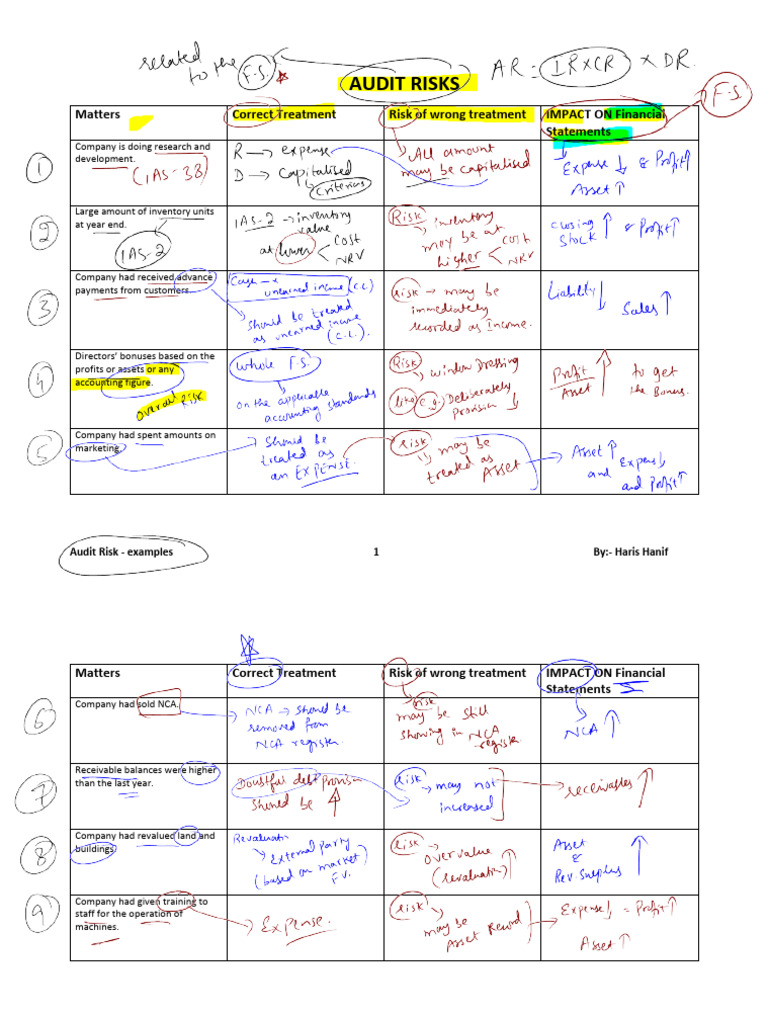 related
to the F.S.
AR = IR x CR x DR.
AUDIT RISKS
F.S.
Matters
Correct Treatment
Risk of wrong treatment
IMPACT ON Financial
Statements
1
Company is doing research and
development.
(IAS-38)
R → expense
D → Capitalised
Criterias
All amount
may be capitalised
Expense ↓ & Profit ↑
Asset ↑
2
Large amount of inventory units
at year end.
IAS-2
IAS-2 → inventory
value
at lower < Cost
NRV
Risk → inventory
may be at
higher < Cost
NRV
closing
stock ↑ & Profit ↑
3
Company had received advance
payments from customers.
Cash - x
unearned income (C.L)
Should be treated
as unearned income
(C.L).
Risk → may be
immediately
recorded as Income.
Liability ↓
Sales ↑
4
Directors' bonuses based on the
profits or assets or any
accounting figure.
Overall Risk
Whole F.S.
on the applicable
accounting standards
Risk
→ window Dressing
like e.g. Deliberately
Provision ↓
Profit
Asset ↑ to get
the Bonus.
5
Company had spent amounts on
marketing.
Should be
treated as
an EXPENSE.
risk
→ may be
treated as
Asset
Asset ↑
and Expense ↓
and Profit ↑
Audit Risk - examples
1
By:- Haris Hanif
Matters
Correct Treatment
Risk of wrong treatment
IMPACT ON Financial
Statements
6
Company had sold NCA.
NCA → Should be
removed from
NCA register
risk
may be still
showing in NCA
register
NCA ↑
7
Receivable balances were higher
than the last year.
Doubtful debt provision
should be ↑
Risk
→ may not
increased
receivables ↑
8
Company had revalued land and
buildings.
Revaluation
→ External party
(based on market)
F.V.
risk →
over value
(revaluation) ↑
Asset
&
Rev Surplus ↑
9
Company had given training to
staff for the operation of
machines.
Expense.
risk
may be
Asset Record
Expense ↓ = Profit ↑
Asset ↑